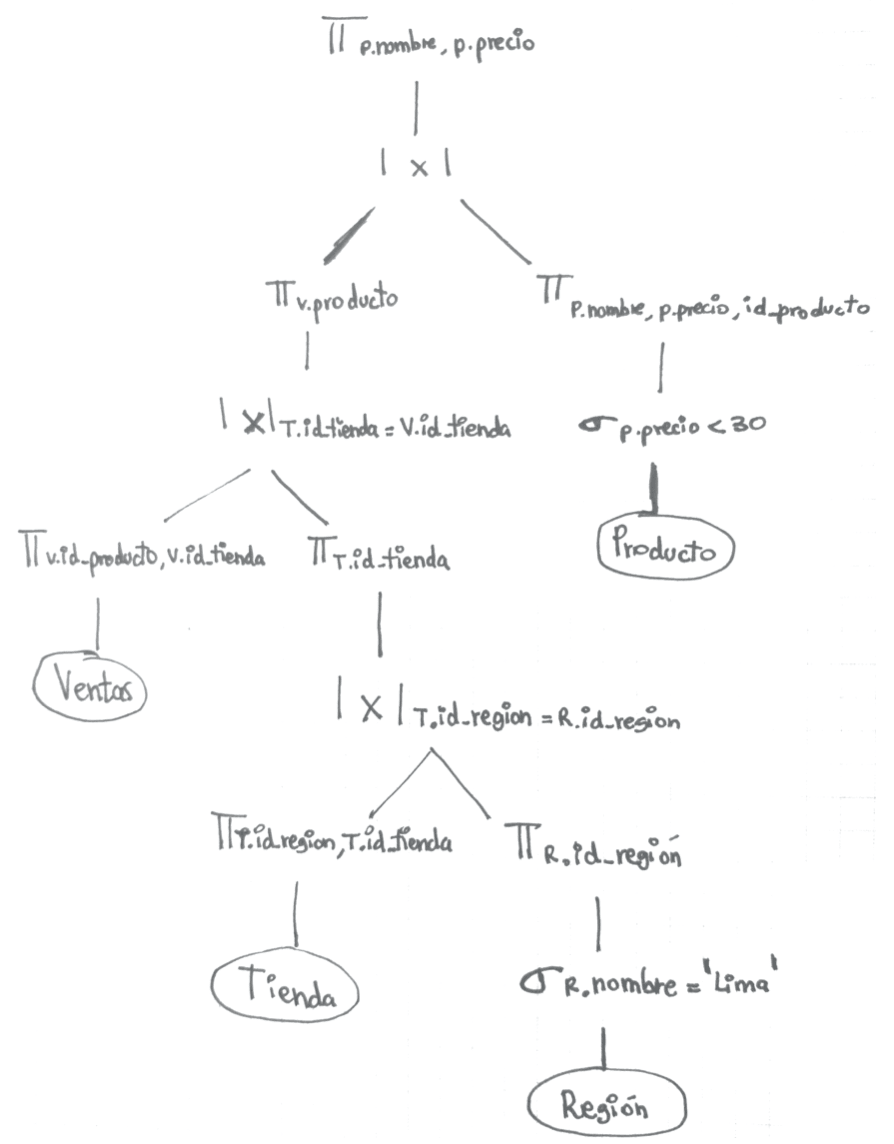 π p.nombre, p.precio
|x|
π v.producto
π P.nombre, p.precio, id_producto
|x| T.id_tienda = V.id_tienda
σ p.precio < 30
π v.id_producto, v.id_tienda
π T.id_tienda
Producto
Ventas
|x| T.id_region = R.id_region
π T.id_region, T.id_tienda
π R.id_región
Tienda
σ R.nombre = 'Lima'
Región